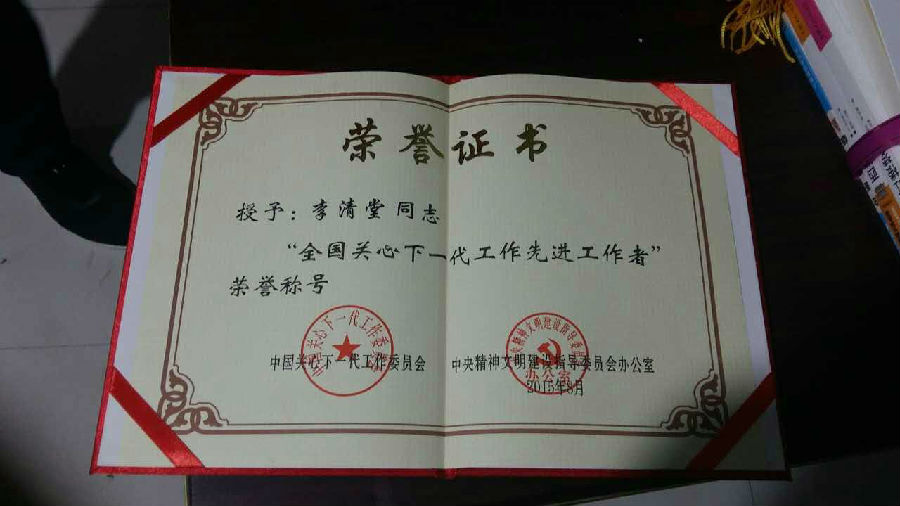 荣誉证书
授予：李清堂同志
“全国关心下一代工作先进工作者”
荣誉称号
中国关心下一代工作委员会
中央精神文明建设指导委员会办公室
2015年8月